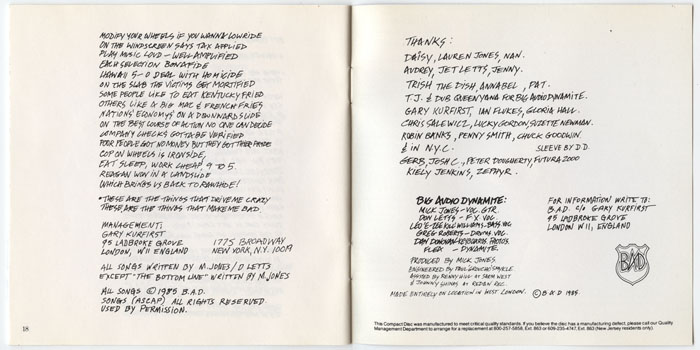 MODIFY YOUR WHEELS IF YOU WANNA LOWRIDE
ON THE WINDSCREEN SAYS TAX APPLIED
PLAY MUSIC LOUD – WELL AMPLIFIED
EACH SELECTION BONAFIDE
HAWAII 5-0 DEAL WITH HOMICIDE
ON THE SLAB THE VICTIMS GET MORTIFIED
SOME PEOPLE LIKE TO EAT KENTUCKY FRIED
OTHERS LIKE A BIG MAC & FRENCH FRIES
NATIONS' ECONOMYS ON A DOWNWARD SLIDE
ON THE BEST COURSE OF ACTION NO ONE CAN DECIDE
COMPANY CHECKS GOTTA BE VERIFIED
POOR PEOPLE GOT NO MONEY BUT THEY GOT THEIR PRIDE
COP ON WHEELS IS IRONSIDE,
EAT SLEEP, WORK CHEAP, 9 TO 5.
REAGAN WON IN A LANDSLIDE
WHICH BRINGS US BACK TO RAWHIDE!
*THESE ARE THE THINGS THAT DRIVE ME CRAZY
THESE ARE THE THINGS THAT MAKE ME BAD.
MANAGEMENT:
GARY KURFIRST
95 LADBROKE GROVE
LONDON, W11 ENGLAND
1775 BROADWAY
NEW YORK, N.Y. 10019
ALL SONGS WRITTEN BY M. JONES / D LETTS
EXCEPT "THE BOTTOM LINE" WRITTEN BY M. JONES
ALL SONGS © 1985 B.A.D.
SONGS (ASCAP) ALL RIGHTS RESERVED.
USED BY PERMISSION.
18
THANKS:
DAISY, LAUREN JONES, NAN.
AUDREY, JET LETTS, JENNY.
TRISH THE DISH, ANNABEL, PAT.
T.J. & DUB QUEENYANA FOR BIG AUDIO DYNAMITE.
GARY KURFIRST, IAN FLUKES, GLORIA HALL.
CHRIS SALEWICZ, LUCKY GORDON, SUZETTE NEWMAN.
ROBIN BANKS, PENNY SMITH, CHUCK GOODWIN.
& IN N.Y.C.
SLEEVE BY D.D.
GERB, JOSH C, PETER DOUGHERTY, FUTURA 2000
KIELY JENKINS, ZEPHYR.
BIG AUDIO DYNAMITE:
MICK JONES – VOC. GTR.
DON LETTS – F X VOC
LEO E-ZEE KILL WILLIAMS – BASS VOC
GREG ROBERTS – DRUMS VOC
DAN DONOVAN – KEYBOARDS. PHOTOS
FLEA – DYNAMITE.
PRODUCED BY MICK JONES
ENGINEERED BY PAUL GROUCHO SMYKLE
ASSISTED BY
AT SARM WEST
&
MADE ENTIRELY ON LOCATION IN WEST LONDON.
© B.A.D 1985.
FOR INFORMATION WRITE TO:
B.A.D. C/O GARY KURFIRST
95 LADBROKE GROVE
LONDON W11, ENGLAND
BAD
This Compact Disc was manufactured to meet critical quality standards. If you believe the disc has a manufacturing defect, please call our Quality
Management Department to arrange for a replacement at 800-257-5858, Ext. 863 or 609-235-4747, Ext. 863 (New Jersey residents only).